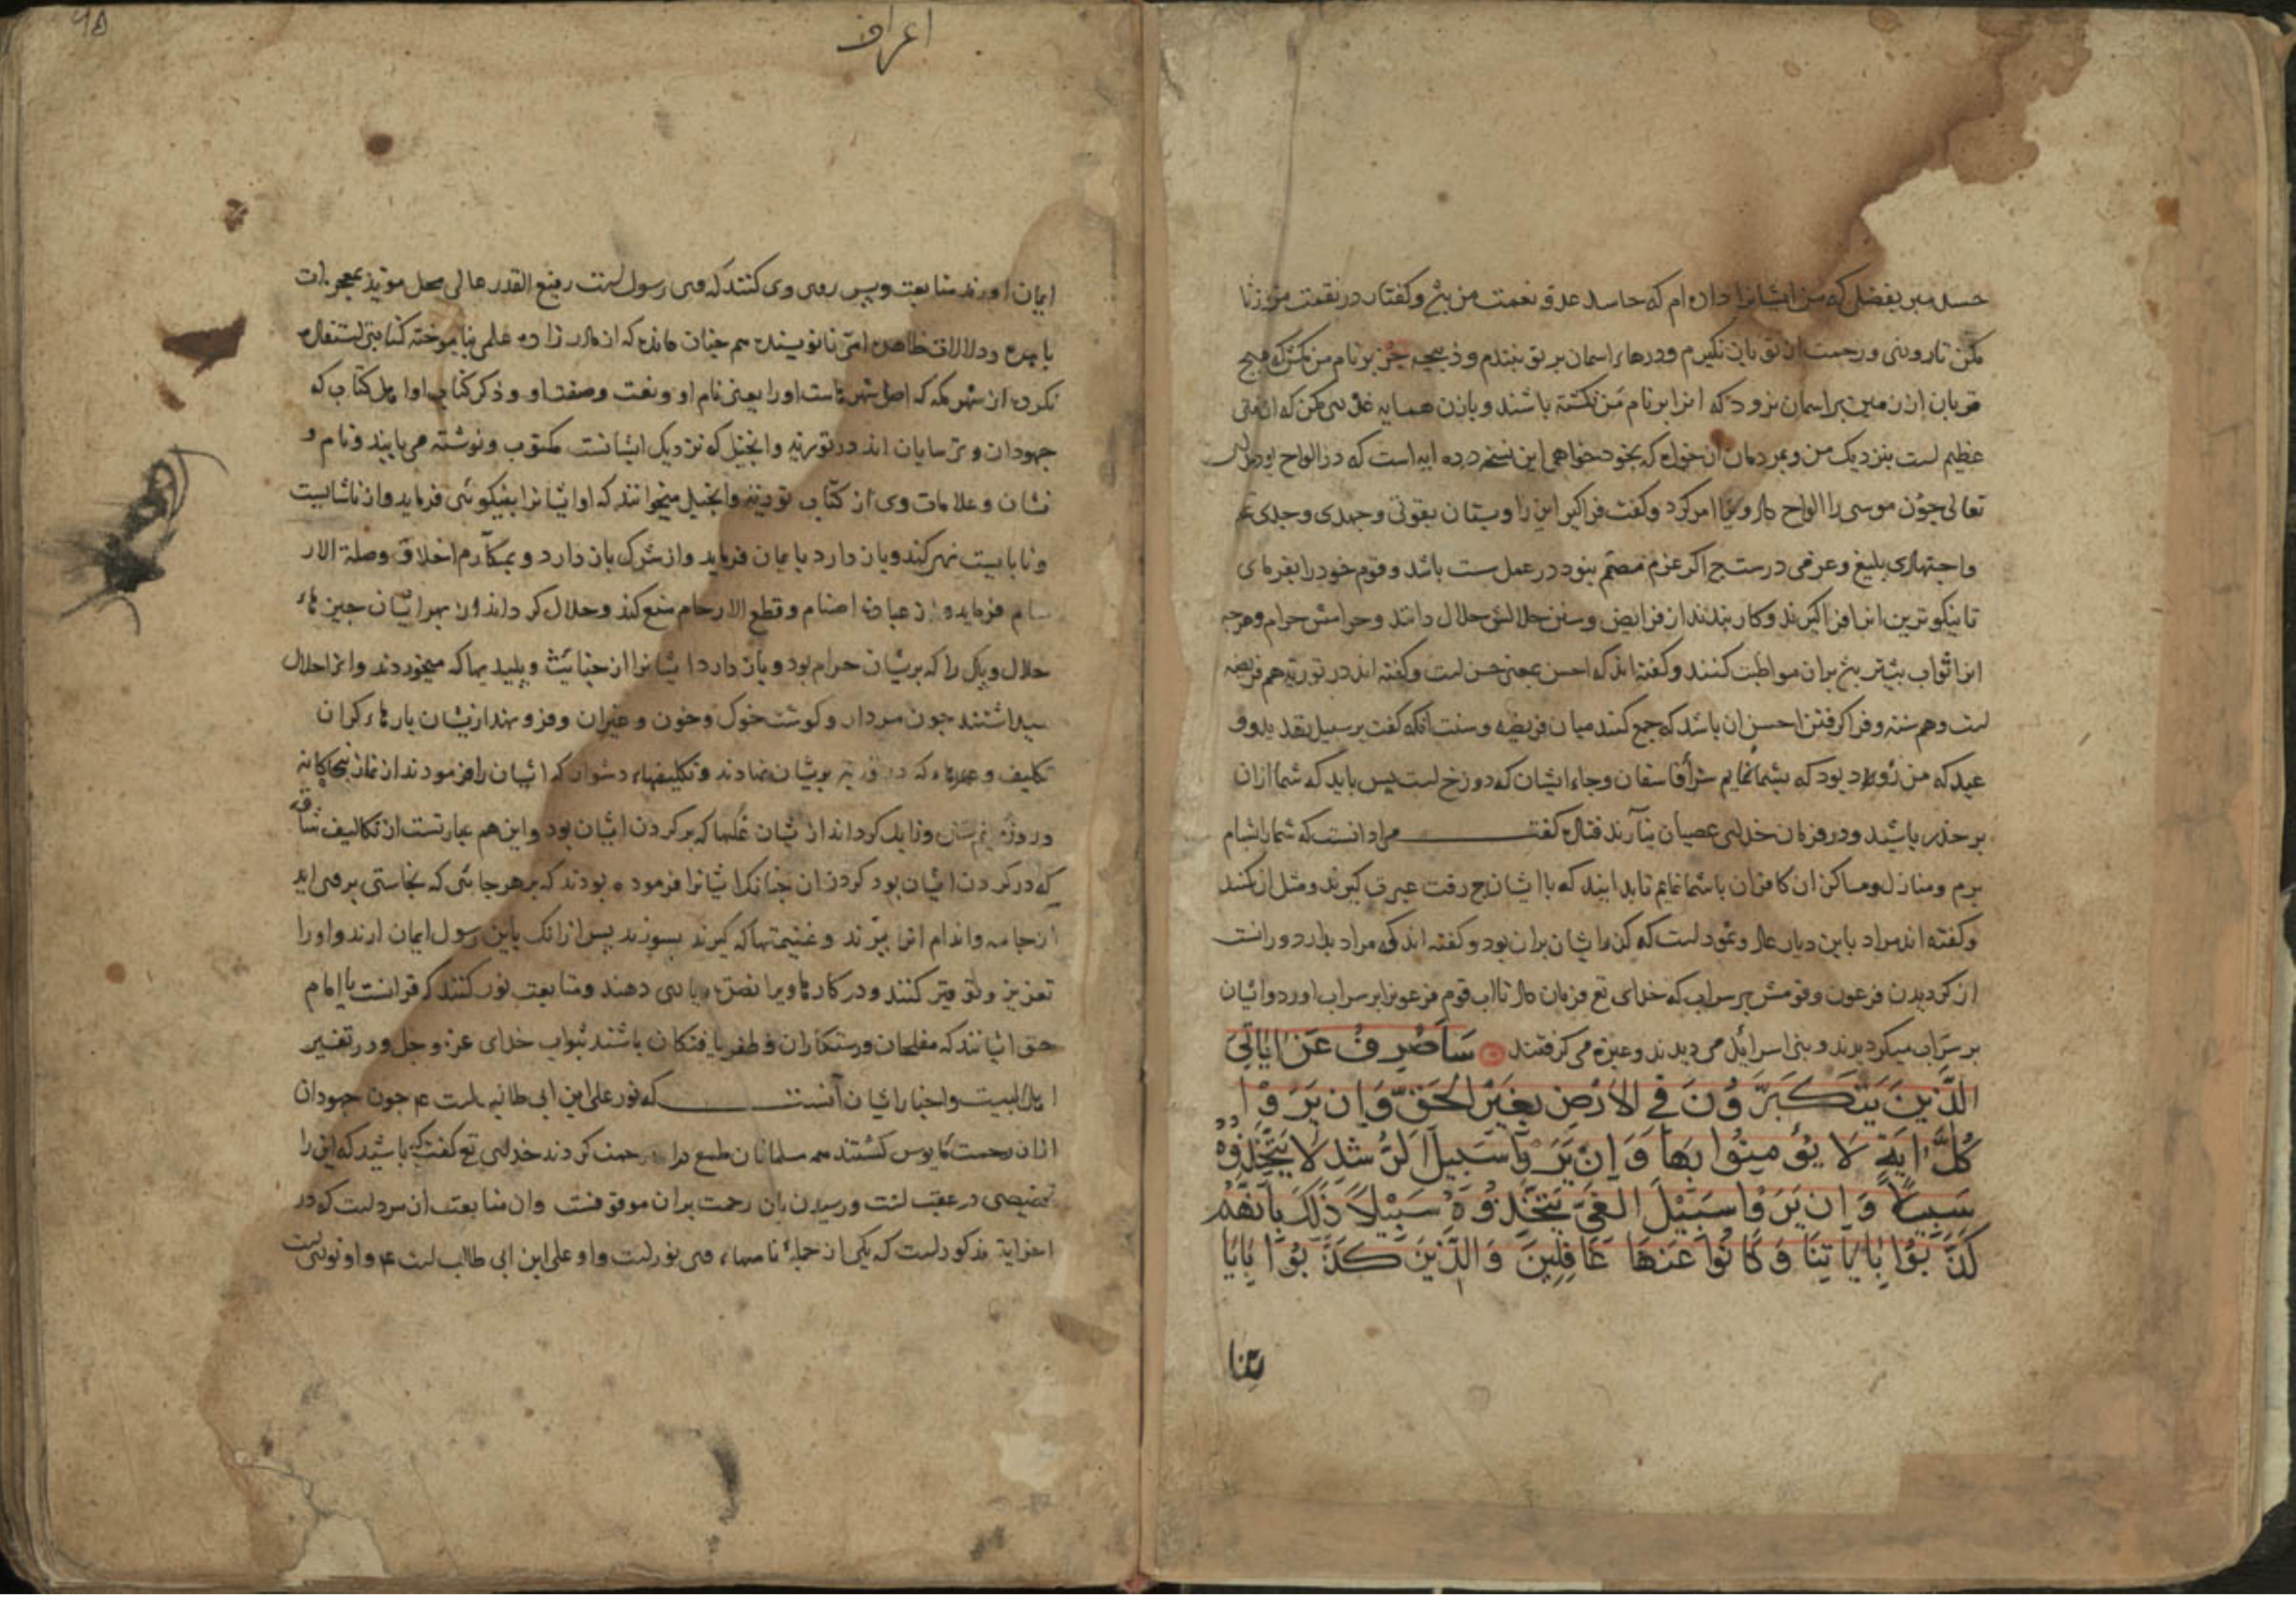 حسد مبر بفضلی که من ایشانرا داده ام که حاسد عدو نعمت من بود و کفتار در نقمت من وزنا
مکن تا روشنی و رحمت از تو باز نگیرم و درهاء اسمان بر تو نبندم و ذبیحه جز بر نام من مکن که هیچ
قربان از زمین بر اسمان نرود که انرا بر نام من نکشته باشند و بازن همسایه غدر مکن که ان مقتی
عظیم است بنزدیک من و بمردمان ان خواه که بخود خواهی این نسخه ده ایه است که در الواح بود
تعالی چون موسی را الواح داد و ویرا امر کرد و کفت فراکیر این را و بستان بقوتی و جهدی و جدی
و اجتهادی بلیغ و عزمی درست چ اکر عزم مصمم نبود در عمل سست باشد و قوم خود را بفرمای
تا نیکوترین انرا فراکیرند و کار بندند از فرایض و سنن حلالش حلال دانند و حرامش حرام و هرچه
انرا ثواب بیشتر بران مواظبت کنند و کفته اند که احسن بمعنی حسن است و کفته اند در توریة هم فریضه
است و هم سنة و فراکرفتن احسن ان باشد که جمع کنند میان فریضه و سنت انکه کفت بر سبیل تهدید و
عید که من زود بود که بشما نمایم سرای فاسقان و جاء ایشان که دوزخ است پس باید که شما ازان
بر حذر باشید و در فرمان خدای عصیان نیارید قتاده کفت مراد انست که شما را بشام
برم و منازل و مساکن ان کافران با شما نمایم تا بدانید که با ایشان چ رفت عبرت کیرند و مثل ان نکنند
و کفته اند مراد باین دیار عاد و ثمود است که کذر ایشان بران بود و کفته اند که مراد بدار دورانست
از کردیدن فرعون و قومش بر سراب که خدای تع فرمان داد تا اب قوم فرعونرا بر سراب اورد و ایشان
بر سراب میکردیدند و بنی اسرایل می دیدند و عبرة می کرفتند سَاَصْرِفُ عَنْ اٰیَاتِیَ
الَّذِینَ یَتَکَبَّرُونَ فِی الْاَرْضِ بِغَیْرِ الْحَقِّ وَاِنْ یَرَوْا
کُلَّ اٰیَةٍ لَا یُؤْمِنُوا بِهَا وَاِنْ یَرَوْا سَبِیلَ الرُّشْدِ لَا یَتَّخِذُوهُ
سَبِیلًا وَاِنْ یَرَوْا سَبِیلَ الْغَیِّ یَتَّخِذُوهُ سَبِیلًا ذٰلِکَ بِاَنَّهُمْ
کَذَّبُوا بِاٰیَاتِنَا وَکَانُوا عَنْهَا غَافِلِینَ وَالَّذِینَ کَذَّبُوا بِاٰیَا
تِنَا
۹۵
اعراف
ایمان اورند متابعت و پس روی وی کنند که وی رسول است رفیع القدر عالی محل موید بمعجزات
باهره و دلالات ظاهره امی نانویسنده هم چنان مانده که از مادر زاده علمی نیاموخته کتابتی استفاده
نکرده از شهر مکه که اصل شهرهاست او را یعنی نام او و نعت و صفت او و ذکر کتاب او اهل کتاب که
جهودان و ترسایان اند در توریة و انجیل که نزدیک ایشانست مکتوب و نوشته می یابند و نام و
نشان و علامات وی از کتاب توریة و انجیل میخوانند که او ایشانرا بنیکوئی فرماید و از ناشایست
و نابایست نهی کند و باز دارد بایمان فرماید و از شرک باز دارد و بمکارم اخلاق و صلة الار
حام فرماید و از عبادت اصنام و قطع الارحام منع کند و حلال کرداند از بهر ایشان چیزهاء
حلال و پاک را که بریشان حرام بود و باز دارد ایشانرا از خبائث و پلیدیها که میخوردند و انرا حلال
میداشتند چون مردار و کوشت خوک و خون و غیر ان و فرو نهد ازیشان بارهاء کران
تکلیف و عهدهاء که در توریة بریشان نهادند و تکلیفهاء دشوار که ایشان را فرمودند از نماز پنجاکانه
و روزه و زایل کرداند ازیشان غلها که بر کردن ایشان بود و این هم عبارتست از تکالیف شاقه
که در کردن ایشان بود کردن ان چنانک ایشانرا فرموده بودند که بر هر جائی که نجاستی بر وی اید
از جامه و اندام انرا ببرند و غنیمتها که کیرند بسوزند پس ازانک باین رسول ایمان ارند و او را
تعزیز و توقیر کنند و در کارها ویرا نصرة و یاری دهند و متابعت نور کنند که قرانست یا امام
حق ایشانند که مفلحان و رستکاران و ظفر یافتکان باشند بثواب خدای عز و جل و در تفسیر
اهل البیت و اخبار ایشان آنست که نور علی ابن ابی طالب است ع چون جهودان
ازان رحمت مایوس کشتند همه مسلمانان طمع دران رحمت کردند خدای تع کفت باشید که این را
تخصیصی در عقب است و رسیدن بان رحمت بران موقوفست و ان متابعت ان مرد است که در
اخر ایة مذکور است که یکی از جملة نامهاء وی نور است و او علی ابن ابی طالب است ع و او نوریست